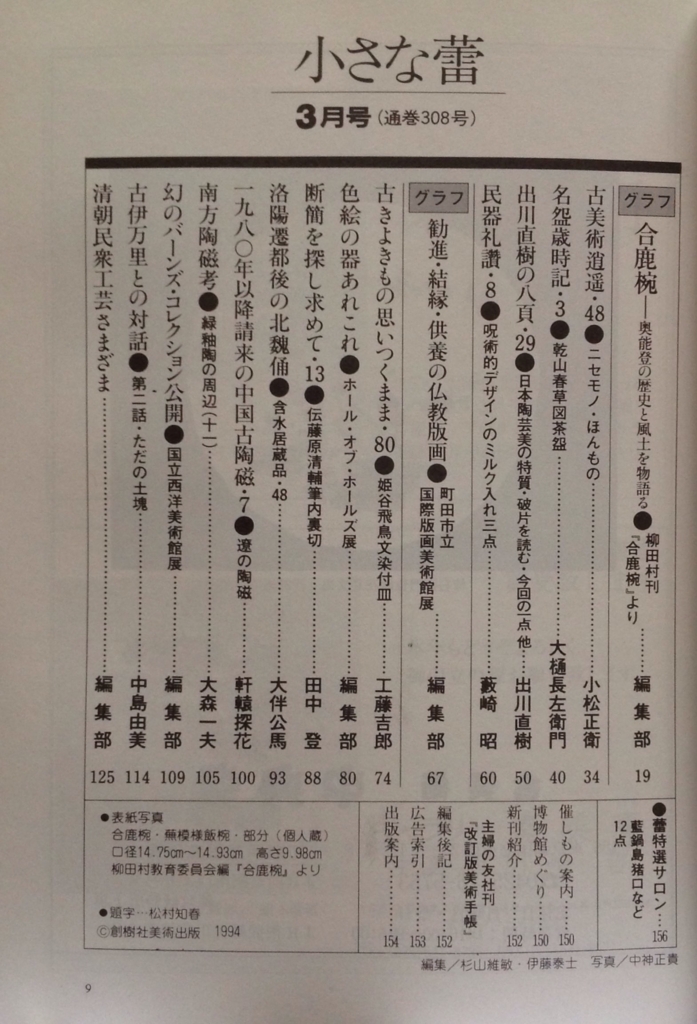 小さな蕾
3月号（通巻308号）
グラフ
合鹿椀―奥能登の歴史と風土を物語る●柳田村刊『合鹿椀』より……編集部 19
古美術逍遥・48●ニセモノ・ほんもの……小松正衛 34
名盌歳時記・3●乾山春草図茶盌……大樋長左衛門 40
出川直樹の八頁・29●日本陶芸美の特質・破片を読む・今回の一点 他……出川直樹 50
民器礼讃・8●呪術的デザインのミルク入れ三点……藪崎 昭 60
グラフ
勧進・結縁・供養の仏教版画●町田市立国際版画美術館展……編集部 67
古きよきもの思いつくまま・80●姫谷飛鳥文染付皿……工藤吉郎 74
色絵の器あれこれ●ホール・オブ・ホールズ展……編集部 80
断簡を探し求めて・13●伝藤原清輔筆内裏切……田中 登 88
洛陽遷都後の北魏俑●含水居蔵品・48……大伴公馬 93
一九八〇年以降請来の中国古陶磁・7●遼の陶磁……軒轅探花 100
南方陶磁考●緑釉陶の周辺（十一）……大森一夫 105
幻のバーンズ・コレクション公開●国立西洋美術館展……編集部 109
古伊万里との対話●第二話・ただの土塊……中島由美 114
清朝民衆工芸さまざま……編集部 125
●蕾特選サロン……156
藍鍋島猪口など
12点
催しもの案内……150
博物館めぐり……150
新刊紹介……152
主婦の友社刊
『改訂版美術手帳』
編集後記……152
広告索引……153
出版案内……154
●表紙写真
合鹿椀・蕪模様飯椀・部分（個人蔵）
口径14.75cm〜14.93cm 高さ9.98cm
柳田村教育委員会編『合鹿椀』より
●題字…松村知春
©創樹社美術出版 1994
編集／杉山維敏・伊藤泰士 写真／中神正貴
9